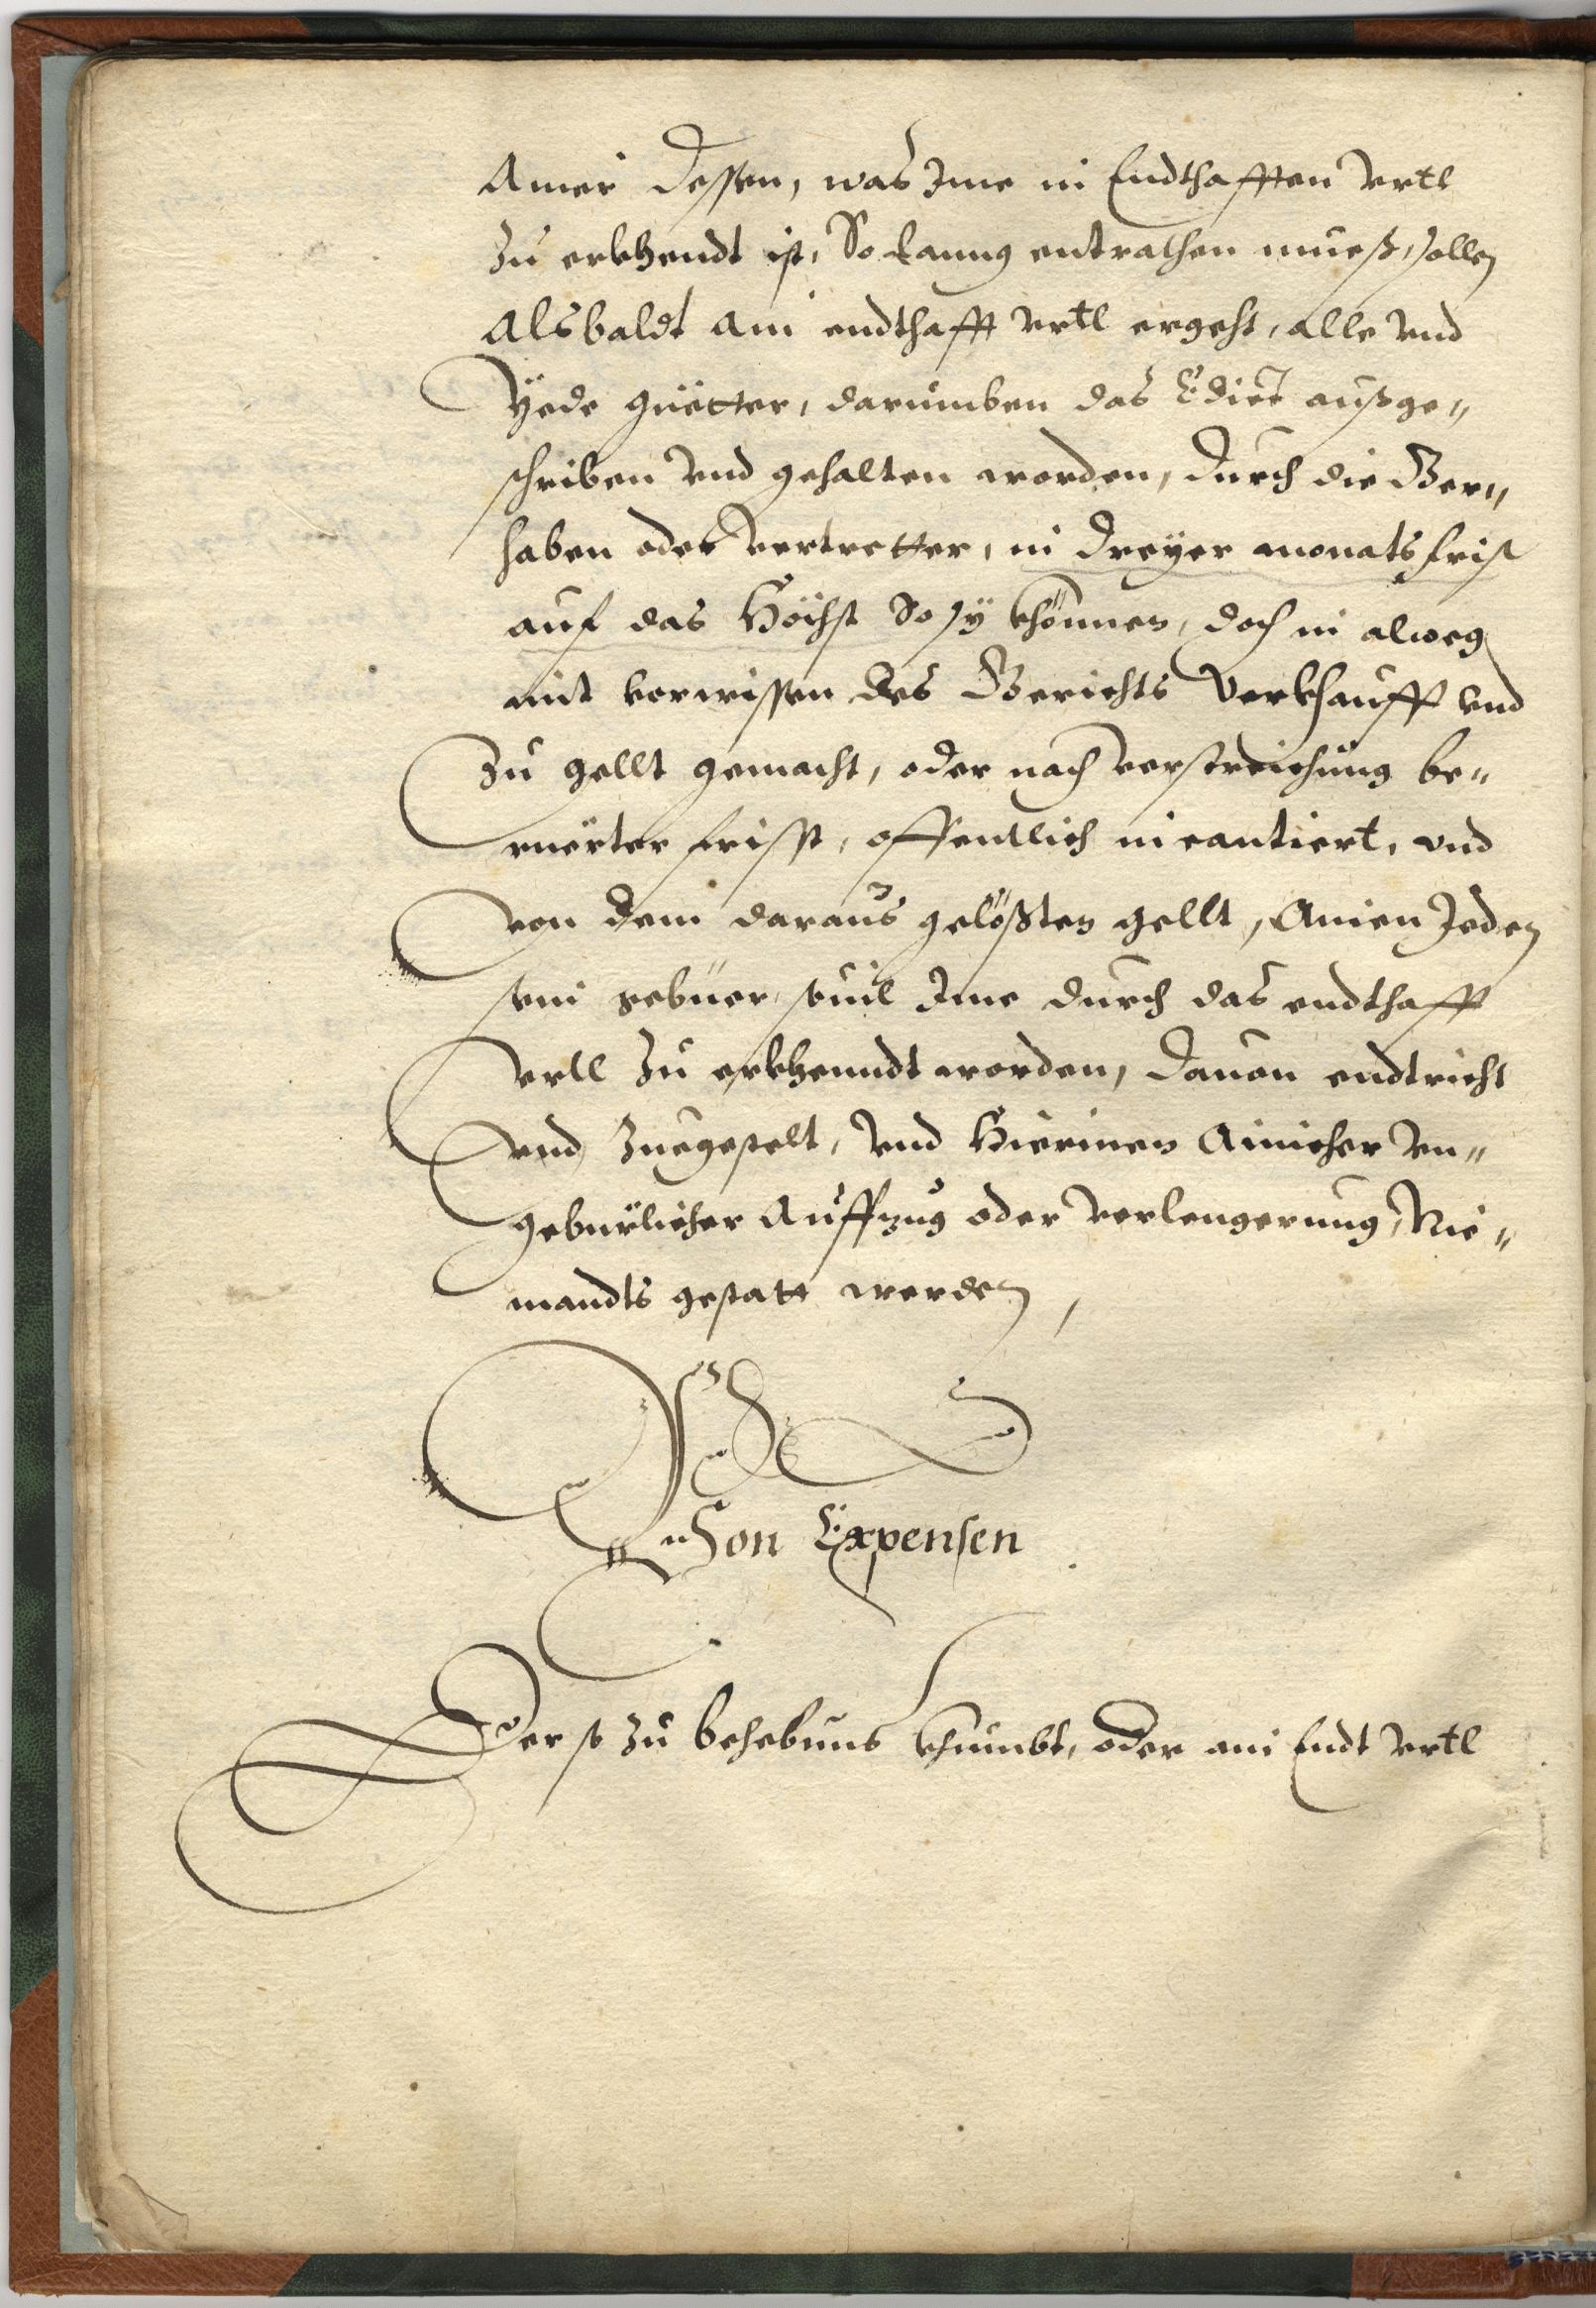 Ainer dessen, was Ime in Endthafften Vrtl
Zu erkhendt ist, So lanng entrathen mueß, sollen
Alsbaldt ain endthafft Vrtl ergeht, alle vnd
Yede güetter, darumben das Edict außge„
schriben vnd gehalten worden, durch die Ger„
haben oder vertretter, in dreyer monats frist
auf das Höchst So sy khönnen, doch in alweg
mit vorwissen des Gerichts Verkhaufft vnd
Zu gellt gemacht, oder nach verstreichung be„
ruerter frisst, offentlich incantiert, vnd
von dem daraus gelößten gellt, Ainen Jeden
sein gebüer, souil Ime durch das endthafft
vrtl Zu erkhenndt worden, dauon endtricht
vnd Zuegestelt, vnd Hierinen Ainicher vn„
gebürlicher Auffzug oder verlengerung, Nie„
mandts gestatt werden,
Von Expensen
Der so Zu behebnus khumbt, oder ain Endt Vrtl